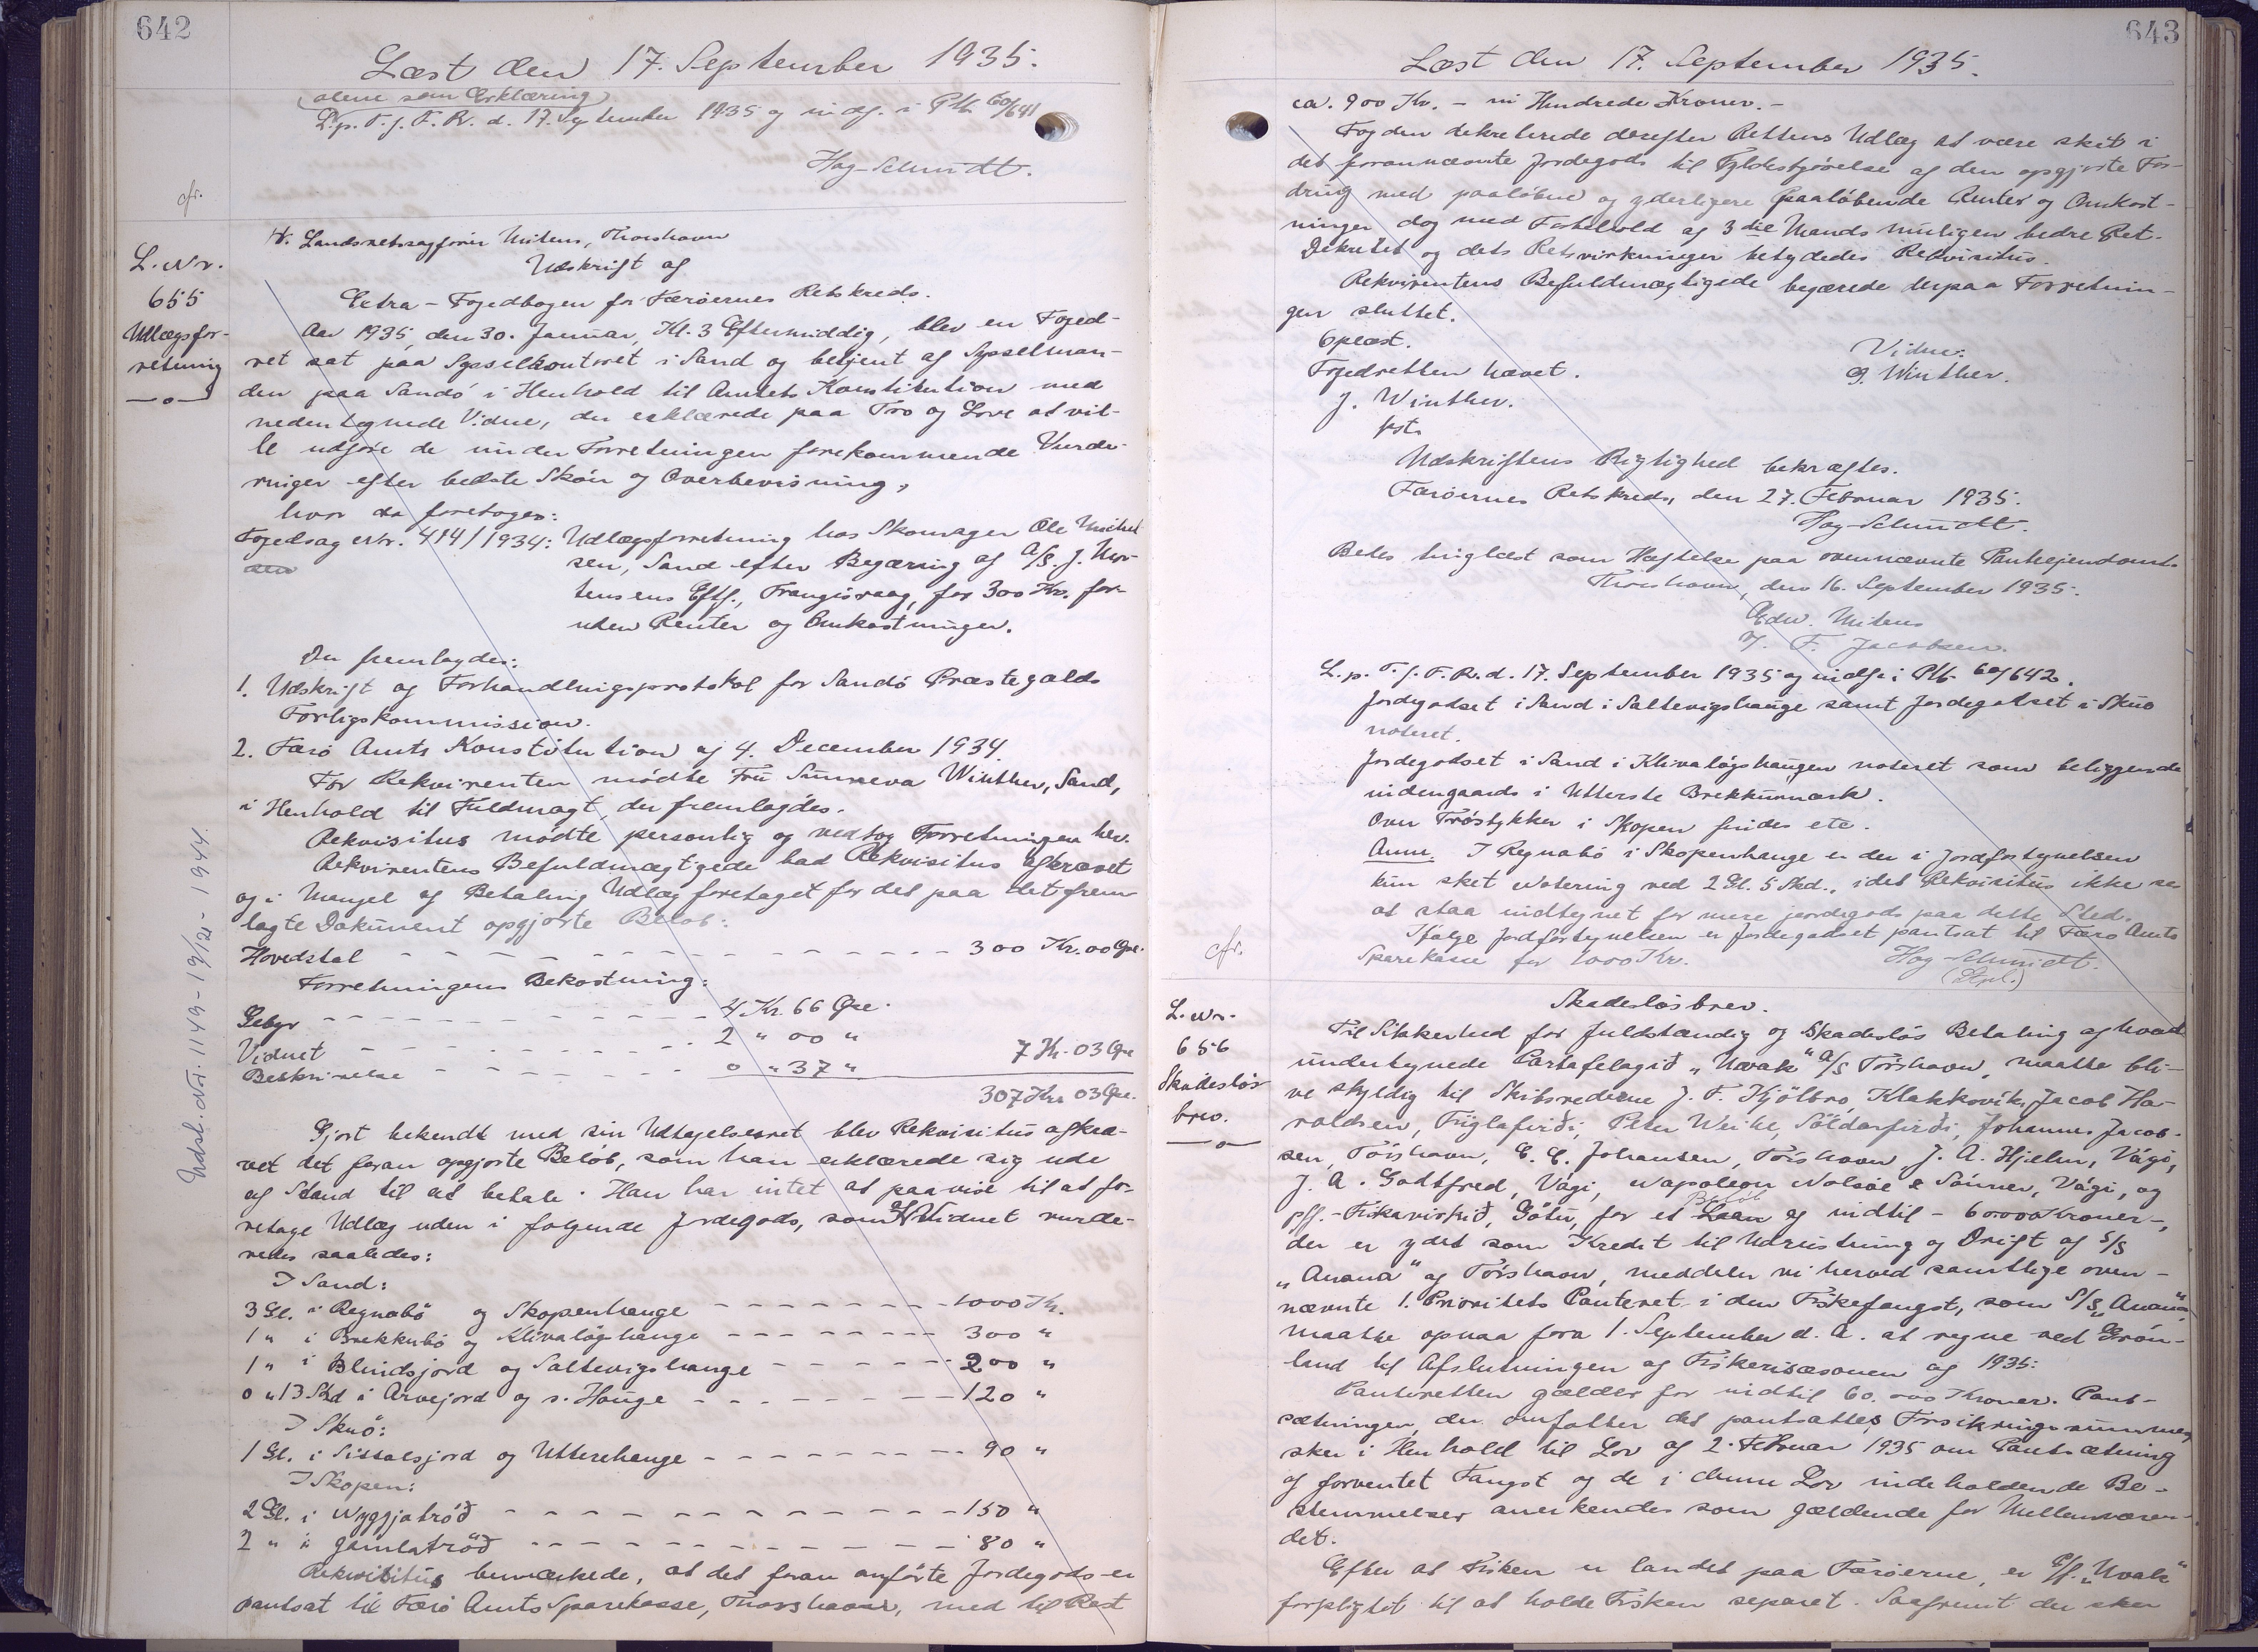 642
Læst den 17. September 1935.
(alene som Erklæring)
L.p.T.f.F.R. d. 17. September 1935 og indf. i Ptk. 60/641
Hag-Schmidt.
cfr.
H. Landsretssagfører Mitens, Thorshavn
L.Nr.
655
Udlægsfor-
retning
—o—
Udskrift af
Extra-Fogedbogen for Færøernes Retskreds.
Aar 1935, den 30. Januar, Kl. 3 Eftermiddag, blev en Foged-
ret sat paa Sysselkontoret i Sand og betjent af Sysselman-
den paa Sandö i Henhold til Amtets Konstitution med
nedentegnede Vidne, der erklærede paa Tro og Love at vil-
le udføre de under Forretningen forekommende Vurde-
ringer efter bedste Skön og Overbevisning,
hvor da foretoges:
Fogedsag Nr. 414/1934: Udlægsforretning hos Skomager Ole Michel-
sen, Sand efter Begæring af A/S. J. Mor-
tensens Eftf., Trangisvaag, for 300 Kr. for-
uden Renter og Omkostninger.
Der fremlagdes:
1. Udskrift af Forhandlingsprotokol for Sandö Præstegælds
Forligskommission.
2. Færö Amts Konstitution af 4. December 1934.
For Rekvirenten mödte Fru Sunneva Winther, Sand,
i Henhold til Fuldmagt, der fremlagdes.
Rekvisitus mödte personlig og vedtog Forretningen her.
Rekvirentens Befuldmægtigede bad Rekvisitus afkrævet
og i Mangel af Betaling Udlæg foretaget for det paa det frem-
lagte Dokument opgjorte Beløb:
Hovedstol - - - - - - - - - - 300 Kr. 00 Øre.
Forretningens Bekostning:
Gebyr - - - - - - - - 4 Kr. 66 Øre.
Vidnet - - - - - - - - 2 " 00 "
Beskrivelse - - - - - - 0 " 37 " 7 Kr. 03 Øre
307 Kr. 03 Øre.
Gjort bekendt med sin Udtagelsesret blev Rekvisitus afkræ-
vet det foran opgjorte Beløb, som han erklærede sig ude
af Stand til at betale. Han har intet at paavise til at fo-
retage Udlæg uden i følgende Jordegods, som af Vidnet vurde-
redes saaledes:
I Sand:
3 Gl. i Regnabö og Skopenhauge - - - - - - 1000 Kr.
1 " i Brekkubö og Klivalögshauge - - - - - 300 "
1 " i Blindsjord og Saltevigshauge - - - - - 200 "
0 " 13 Skd i Arvejord og s. Hauge - - - - - - 120 "
I Skuö:
1 Gl. i Sissalsjord og Utterehauge - - - - - - 90 "
I Skopen:
2 Gl. i Nyggjatröð - - - - - - - - - - 150 "
2 " i gamlatröð - - - - - - - - - - 80 "
Rekvisitus bemærkede, at det foran anførte Jordegods er
pantsat til Færö Amts Sparekasse, Thorshavn, med til Rest
Udsl. Nr. 1149-19/12-1944.
643
Læst den 17. September 1935.
ca. 900 Kr. - ni Hundrede Kroner. -
Fogden dekreterede derefter Rettens Udlæg at være sket i
det forannævnte Jordegods til Fyldestgörelse af den opgjorte For-
dring med paalöbne og yderligere paalöbende Renter og Omkost-
ninger dog med Forbehold af 3die Mands muligen bedre Ret.
Dekretet og dets Retsvirkninger betydedes Rekvisitus.
Rekvirentens Befuldmægtigede begærede derpaa Forretnin-
gen sluttet.
Oplæst.
Fogedretten hævet.
Vidne:
J. Winther.
kst.
Winther.
Udskriftens Rigtighed bekræftes.
Færöernes Retskreds, den 27. Februar 1935.
Hag-Schmidt.
Bedes tinglæst som Hæftelse paa ovennævnte Panteejendomt.
Thorshavn, den 16. September 1935.
Edw. Mitens
F. Jacobsen.
L.p.T.f.F.R.d. 17. September 1935 og indf. i Ptk. 60/642.
Jordegodset i Sand i Saltevigshauge samt Jordegodset i Skuö
noteret.
Jordegodset i Sand i Klivalögshaugen noteret som beliggende
indengaards i Utterste Brekkumark.
Over Tröstykker i Skopen findes ete.
Anm. I Regnabö i Skopenhauge er der i Jordfortegnelsen
kun sket Notering ved 2 Gl. 5 Skd., idet Rekvisitus ikke ses
at staa indtegnet for mere jordegods paa dette Sted.
Ifølge Jordfortegnelsen er Jordegodset pantsat til Færö Amts
Sparekasse for 1000 Kr.
Hag-Schmidt.
(Stpl.)
cfr.
L.Nr.
656
Skadeslös-
brev.
—o—
Skadeslösbrev.
Til Sikkerhed for fuldstændig og skadeslös Betaling af hvad
undertegnede Partafelagið „Uvak" A/S Tórshavn, maatte bli-
ve skyldig til Skibsrederne J. F. Kjölbro, Klakksvik, Jacob Ha-
raldsen, Fuglafirði, Peter Weihe, Söldarfirði, Johannes Jacob-
sen, Tórshavn, E. E. Johansen, Tórshavn, J. A. Hjelm, Vági,
J. A. Godtfred, Vági, Napoleon Nolsöe & Sönner, Vági, og
pff.-Fiskavirkið, Götu, for et Laan Belöb af indtil - 60000 Kroner -,
der er ydet som Kredit til Udrustning og Drift af S/S
„Anana" af Tórshavn, meddeler vi herved samtlige oven-
nævnte 1. Prioritets Panteret i den Fiskefangst, som S/S „Anana"
maatte opnaa fora 1. September d. A. at regne ved Grön-
land til Afslutningen af Fiskerisæsonen af 1935:
Panteretten gælder for indtil 60.000 Kroner. Pant-
sætningen, der omfatter det pantsattes Forsikringssummer,
sker i Henhold til Lov af 2. Februar 1935 om Pantsætning
af forventet Fangst og de i denne Lov indeholdende Be-
stemmelser anerkendes som gældende for Mellemværen-
det.
Efter at Fisken er landet paa Færöerne, er P/f. „Uvak"
forpligtet til at holde Fisken separet. Saafremt der sker